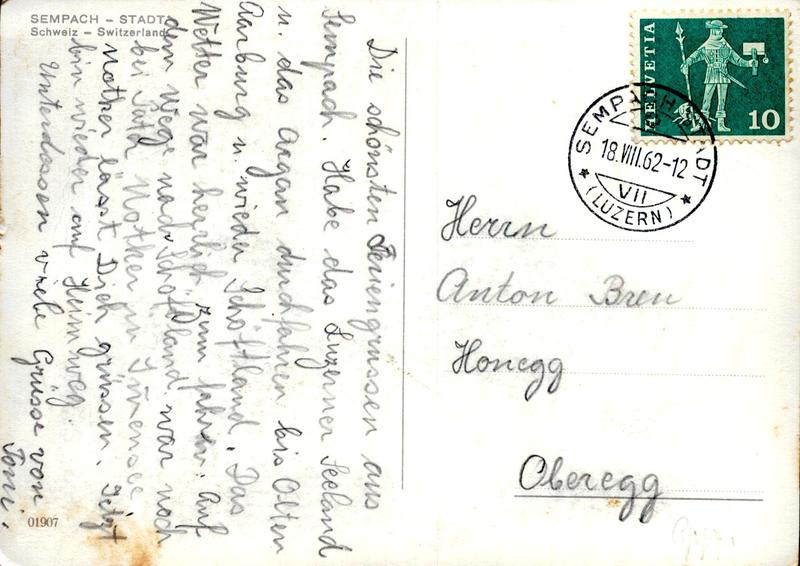 SEMPACH – STADT
Schweiz – Switzerland
Die schönsten Feriengrüssen aus
Sempach. Habe das Luzerner Seeland
u. das Argau durchfahren bis Olten
Aarburg u. wieder Schöftland. Das
Wetter war herrlich zum fahren. Auf
dem Wege nach Schöftland war noch
bei Notker in
notker lässt Dich grüssen. Jetzt
bin wieder auf Heimweg.
Unterdossen viele Grüsse von
Toni.
01907
HELVETIA
10
SEMPACH STADT
18.VIII.62-12
VII
(LUZERN)
Herrn
Anton Breu
Honegg
Oberegg